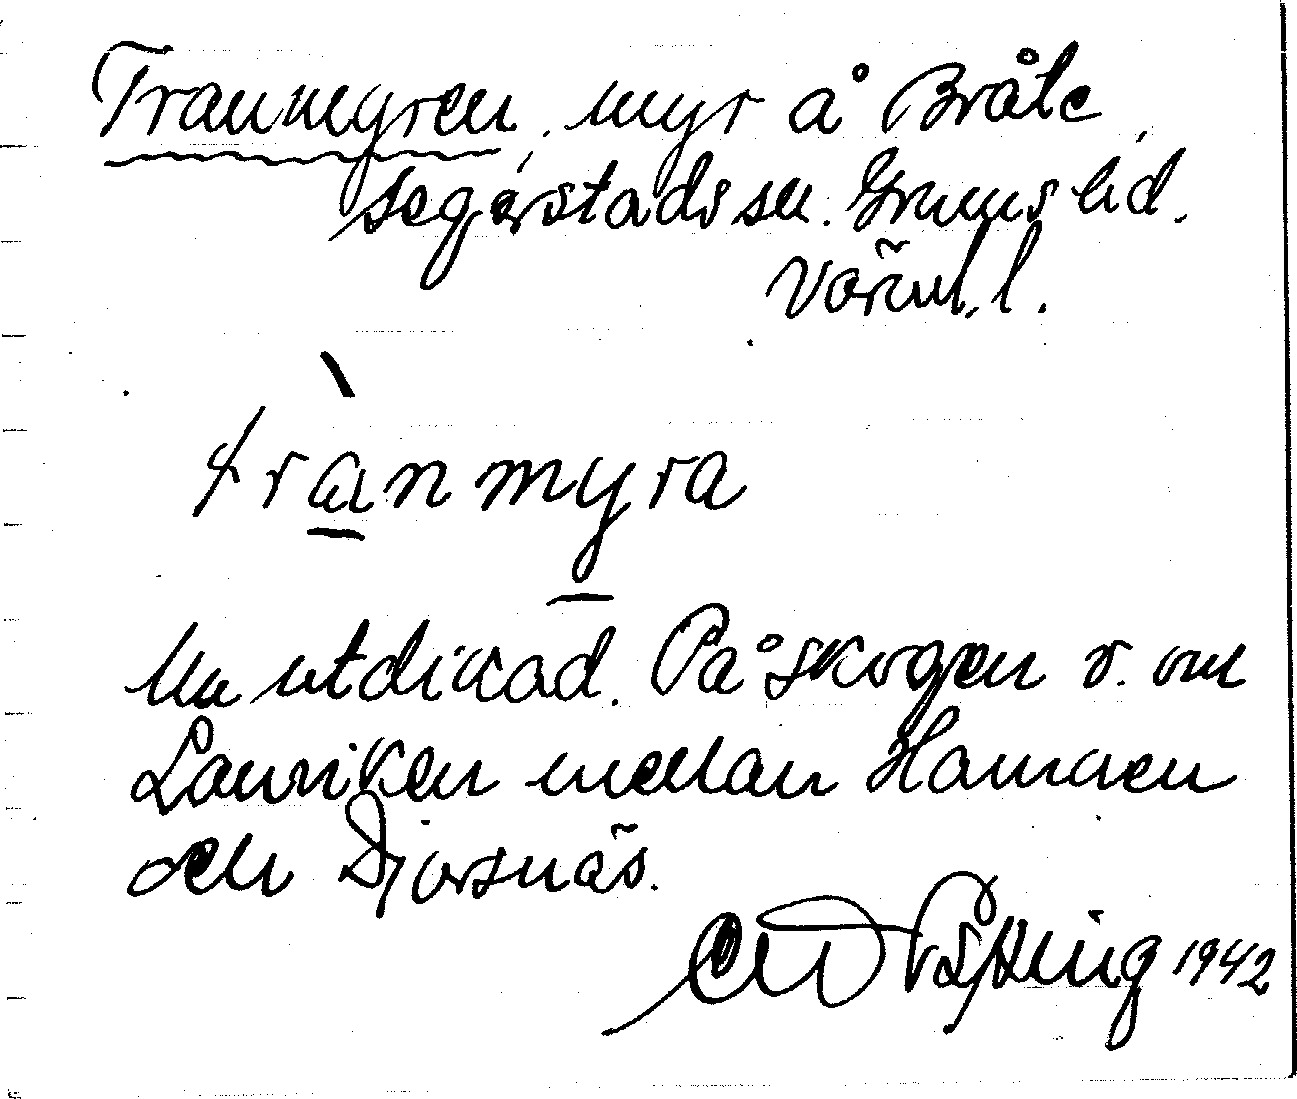 Tranmyren, myr å Bråte,
Segerstads sn. Grums hd.
Värml. l.
trànmyra
Nu utdikad. På skogen v. om
mellan Hamnen
och Djorsnäs.
1942